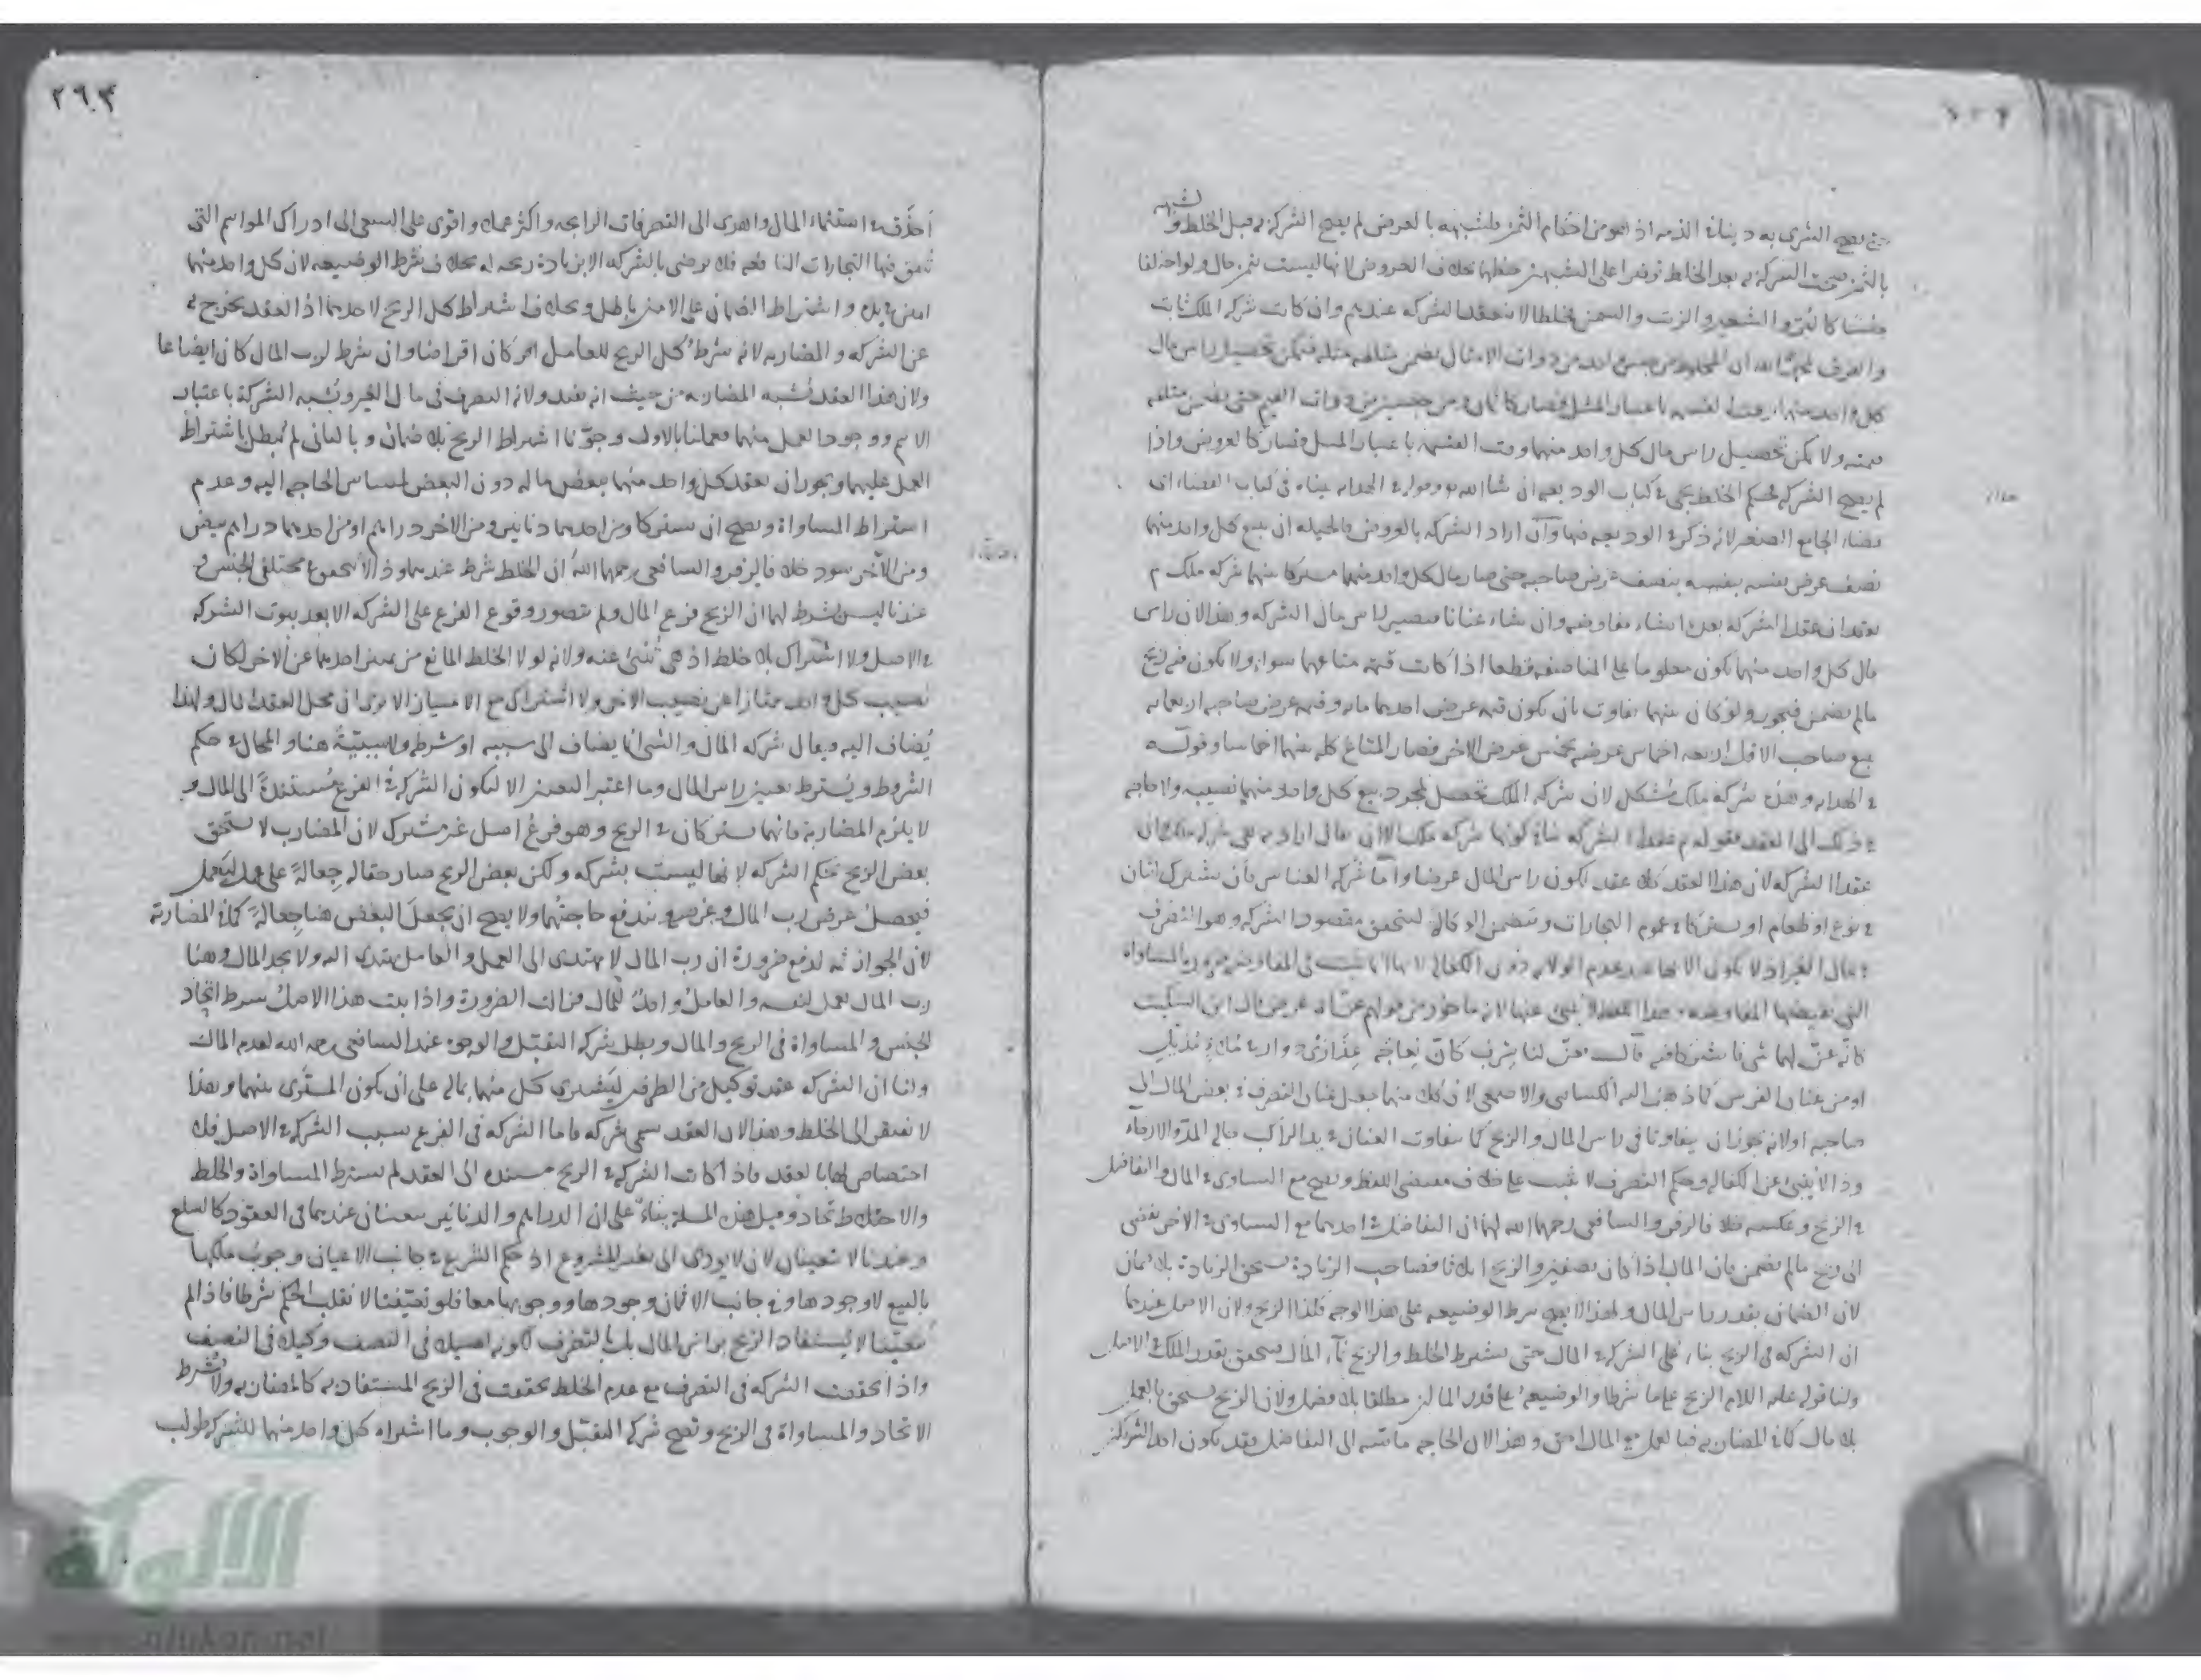 حتى يصح الشرى به دينا في الذمة اذ هو من احكام الثمن فلشبهه بالعرض لم يصح الشركة به قبل الخلط ولشبهه
بالثمن صحت الشركة به بعد الخلط توفيرا على الشبهين حظهما بخلاف العروض لانها ليست بثمن بحال ولو اختلفا
جنسا كالبر والشعير والزيت والسمن فخلطا لا تنعقد الشركة عندهم وان كانت شركة الملك ثابت
والفرق لمحمد رحمه الله ان المخلوط من جنس واحد من ذوات الامثال يضمن متلفه مثله فيمكن تحصيل راس مال
كل واحد منهما وقت القسمة باعتبار المثل فصار كالثمن ومن جنسين من ذوات القيم حتى يضمن متلفه
قيمته ولا يمكن تحصيل راس مال كل واحد منهما وقت القسمة باعتبار المثل فصار كالعروض واذا
لم يصح الشركة فحكم الخلط يجئ في كتاب الوديعة ان شا الله وقوله في الهداية بيناه في كتاب القضاء اى
قضاء الجامع الصغير لانه ذكر في الوديعة فيها وان اراد الشركة بالعروض فالحيلة ان يبيع كل واحد منهما
نصف عرض نفسه بنصف عرض صاحبه حتى صار مال كل واحد منهما مشتركا بينهما شركة ملك ثم
يعقدان عقد الشركة بعده ان شاء مفاوضة وان شاء عنانا فيصير راس مال الشركة وهذا لان راس
مال كل واحد منهما يكون معلوما على المناصفة قطعا اذا كانت قيمة متاعهما سواء ولا يكون فيه ربح
مالم يضمن فيجوز ولو كان بينهما تفاوت بان يكون قيمة عرض احدهما مائة وقيمة عرض صاحبه اربعمائة
يبيع صاحب الاقل اربعة اخماس عرضه بخمس عرض الاخر فصار المتاع كله بينهما اخماسا وقوله
في الهداية وهذه شركة ملك مشكل لان شركة الملك تحصل بمجرد بيع كل واحد منهما نصيبه ولا حاجة
في ذلك الى العقد فقوله ثم عقدا الشركة كونها شركة ملك الا ان يقال
عقدا الشركة لان هذا العقد كلا عقد لكون راس المال عرضا واما شركة العنان بأن يشترك اثنان
في نوع او طعام او يشتركا في عموم التجارات وتتضمن الوكالة لتحقق مقصود الشركة وهو التصرف
في مال الغير اذ لا يكون الا بها عند عدم الولاية دون الكفالة لانها انما تثبت في المفاوضة ضرورة المساواة
التي تقتضيها المفاوضة وهذا اللفظ لا ينبئ عنها لانه ماخوذ من قولهم عن له عرض قال ابن السكيت
كانه عن لهما شئ فاشتركا فيه قال فعن لنا سرب كأن نعاجه عذارى دوار في ملاء مذيل
او من عنان الفرس كما ذهب اليه الكسائى والاصمعى لان كلا منهما جعل عنان التصرف في بعض المال الى
صاحبه او لانه يجوز ان يتفاوتا في راس المال والربح كما يتفاوت العنان في يد الراكب حالة المد والارخاء
وذا لا ينبئ عن الكفالة وحكم التصرف لا يثبت على خلاف مقتضى اللفظ ويصح مع التساوى في المال والتفاضل
في الربح وعكسه خلافا لزفر والشافعى رحمهما الله لهما ان التفاضل في احدهما مع التساوى في الاخر يفضى
الى ربح مالم يضمن فان المال اذا كان نصفين والربح اثلاثا فصاحب الزيادة يستحق الزيادة بلا ضمان
لان الضمان بقدر راس المال ولهذا لا يصح شرط الوضيعة على هذا الوجه فكذا الربح ولان الاصل عندهما
ان الشركة في الربح بناء على الشركة في المال حتى يشترط الخلط والربح نماء المال فيستحق بقدر الملك في الاصل
ولنا قوله عليه السلام الربح على ما شرطا والوضيعة على قدر المالين مطلقا بلا فصل ولان الربح يستحق بالعمل
بلا مال كما في المضاربة فبالعمل مع المال احق وهذا لان الحاجة ماسة الى التفاضل فقد يكون احد الشريكين
٢٦٣
أحذق في استنماء المال واهدى الى التصرفات الرابحة واكثر عملا واقوى على السعى الى ادراك المواسم التي
تنفق فيها التجارات النافعة فلا يرضى بالشركة الا بزيادة ربحه له بخلاف شرط الوضيعة لان كل واحد منهما
امين واشتراط الضمان على الامين باطل وبخلاف اشتراط كل الربح لاحدهما اذ العقد يخرج به
عن الشركة والمضاربة لانه شرط كل الربح للعامل كان اقراضا وان شرط لرب المال كان ابضاعا
ولان هذا العقد يشبه المضاربة من حيث انه عقد ولانه التصرف في مال الغير ويشبه الشركة باعتبار
الاسم ووجود العمل منهما فعملنا بالاول وجوزنا اشتراط الربح بلا ضمان وبالثانى لم يبطل باشتراط
العمل عليهما ويجوز ان يعقد كل واحد منهما ببعض ماله دون البعض لمساس الحاجة اليه وعدم
اشتراط المساواة ويصح ان يشتركا ومن احدهما دنانير ومن الاخر دراهم او من احدهما دراهم بيض
ومن الآخر سود خلافا لزفر والشافعى رحمهما الله ان الخلط شرط عندهما وذا لا يتحقق في مختلفى الجنس و
عندنا ليس بشرط لهما ان الربح فرع المال ولم يتصور وقوع الفرع على الشركة الا بعد ثبوت الشركة
في الاصل ولا اشتراك بلا خلط اذ هى تنبئ عنه ولانه لولا الخلط المانع من تميز احدهما عن الآخر لكان
نصيب كل واحد ممتازا عن نصيب الاخر ولا اشتراك مع الامتياز الا ترى ان محل العقد المال ولهذا
يضاف اليه ويقال شركة المال والشئ انما يضاف الى سببه او شرطه ولا سببية هنا والمحال في حكم
الشروط ويشترط تعيين راس المال وما اعتبر التعيين الا لتكون الشركة في الفرع مستندة الى المال و
لا يلزم المضاربة فانهما يشتركان في الربح وهو فرغ اصل غير مشترك لان المضارب لا يستحق
بعض الربح بحكم الشركة لانها ليست بشركة ولكن بعض الربح صار حقا له جعالة على عمله ليعمل
فيحصل غرض رب المال وغرضه وتندفع حاجتهما ولا يصح ان يجعل البعض هنا جعالة كما في المضاربة
لان الجواز ثمه لدفع ضرورة ان رب المال لا يهتدى الى العمل والعامل يهتدى اليه ولا يجد المال وهنا
رب المال يعمل لنفسه والعامل واجد للمال فزالت الضرورة واذا ثبت هذا الاصل شرط اتحاد
الجنس والمساواة في الربح والمال وبطل شركة التقبل والوجوه عند الشافعى رحمه الله لعدم المال
ولنا ان الشركة عقد توكيل من الطرفين ليشترى كل منهما بماله على ان يكون المشترى بينهما وهذا
لا يفتقر الى الخلط وهذا لان العقد سمى شركة فاما الشركة في الفرع بسبب الشركة في الاصل فلا
اختصاص لها بالعقد فاذا كانت الشركة في الربح مستندة الى العقد لم يشترط المساواة والخلط
والاتحاد وقيل هذه المسئلة بناء على ان الدراهم والدنانير يتعينان عندهما في العقود كالسلع
وعندنا لا تتعينان لان لا يودى الى تغيير المشروع اذ حكم الشرع في جانب الاعيان وجوب ملكها
بالبيع لا وجودها وفي جانب الاثمان وجودها ووجوبها معا فلو تعينتا لانقلب الحكم شرطا فاذا لم
تتعينا لا يستفاد الربح براس المال بل بالتصرف لكونه اصيلا في النصف وكيلا في النصف
واذا تحققت الشركة في التصرف مع عدم الخلط تحققت في الربح المستفاد به كالمضاربة ولا يشرط
الاتحاد والمساواة في الربح وتصح شركة التقبل والوجوب وما اشتراه كل واحد منهما للشركة طولب
الألوكة
www.alukah.net